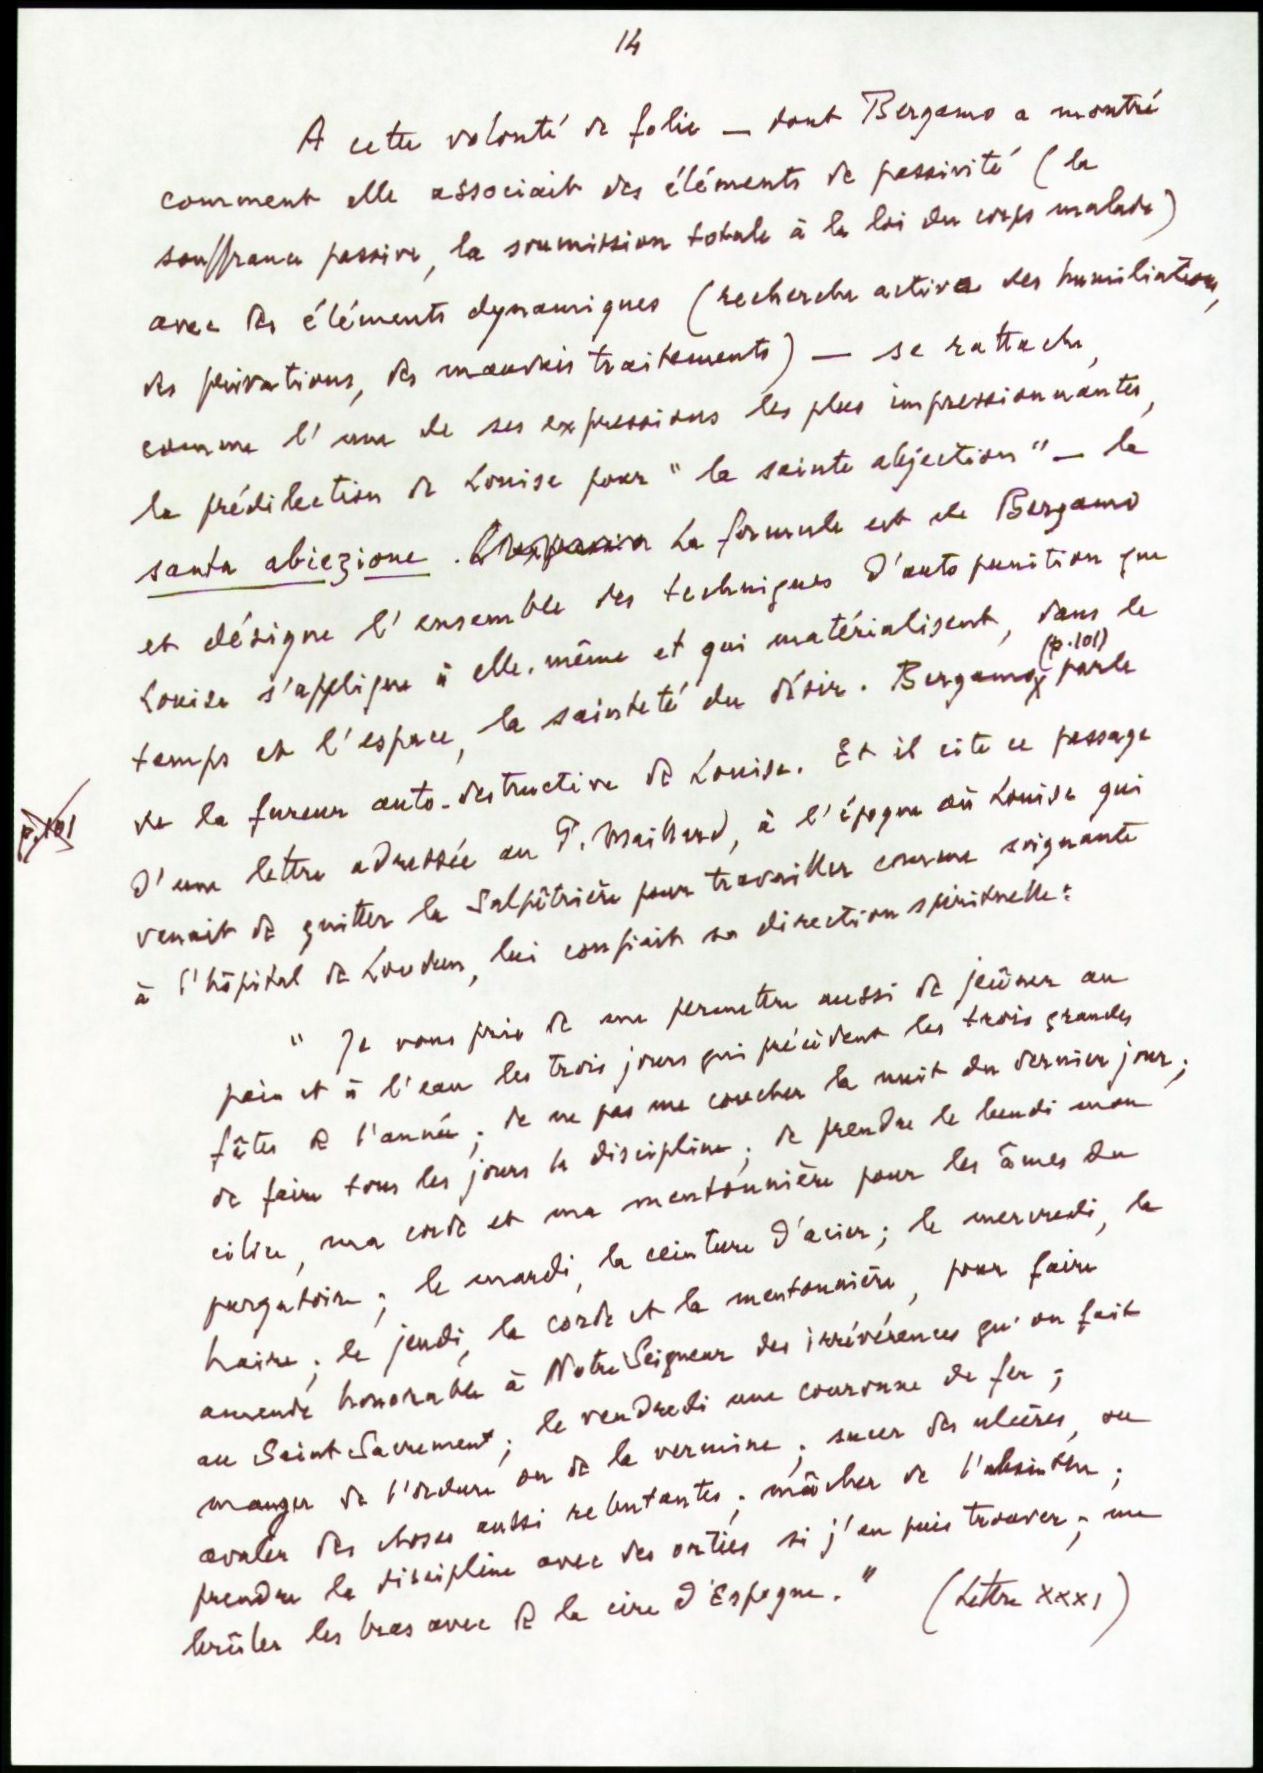 14
A cette volonté de folie — dont Bergamo a montré
comment elle associait des éléments de passivité (la
souffrance passive, la soumission totale à la loi du corps malade)
avec des éléments dynamiques (recherche active des humiliations,
des privations, des mauvais traitements) — se rattache,
comme l'une de ses expressions les plus impressionnantes,
la prédilection de Louise pour "la sainte abjection" — la
santa abiezione. La formule est de Bergamo
et désigne l'ensemble des techniques d'autopunition que
Louise s'applique à elle-même et qui matérialisent, dans le
temps et l'espace, la sainteté du désir. Bergamo (p.101) parle
de la fureur auto-destructive de Louise. Et il cite ce passage
p.101
d'une lettre adressée au P. Maillard, à l'époque où Louise qui
venait de quitter la Salpêtrière pour travailler comme soignante
à l'hôpital de Loudun, lui confiait sa direction spirituelle:
" Je vous prie de me permettre aussi de jeûner au
pain et à l'eau les trois jours qui précèdent les trois grandes
fêtes de l'année ; de ne pas me coucher la nuit du dernier jour ;
de faire tous les jours la discipline ; de prendre le lundi mon
cilice, ma corde et ma mentonnière pour les âmes du
purgatoire ; le mardi, la ceinture d'acier ; le mercredi, la
haire ; le jeudi, la corde et la mentonnière, pour faire
amende honorable à Notre Seigneur des irrévérences qu'on fait
au Saint Sacrement ; le vendredi une couronne de fer ;
manger de l'ordure ou de la vermine ; sucer des ulcères, ou
avaler des choses aussi rebutantes ; mâcher de l'absinthe ;
prendre la discipline avec des orties si j'en puis trouver ; me
brûler les bras avec de la cire d'Espagne. " (Lettre XXXI)